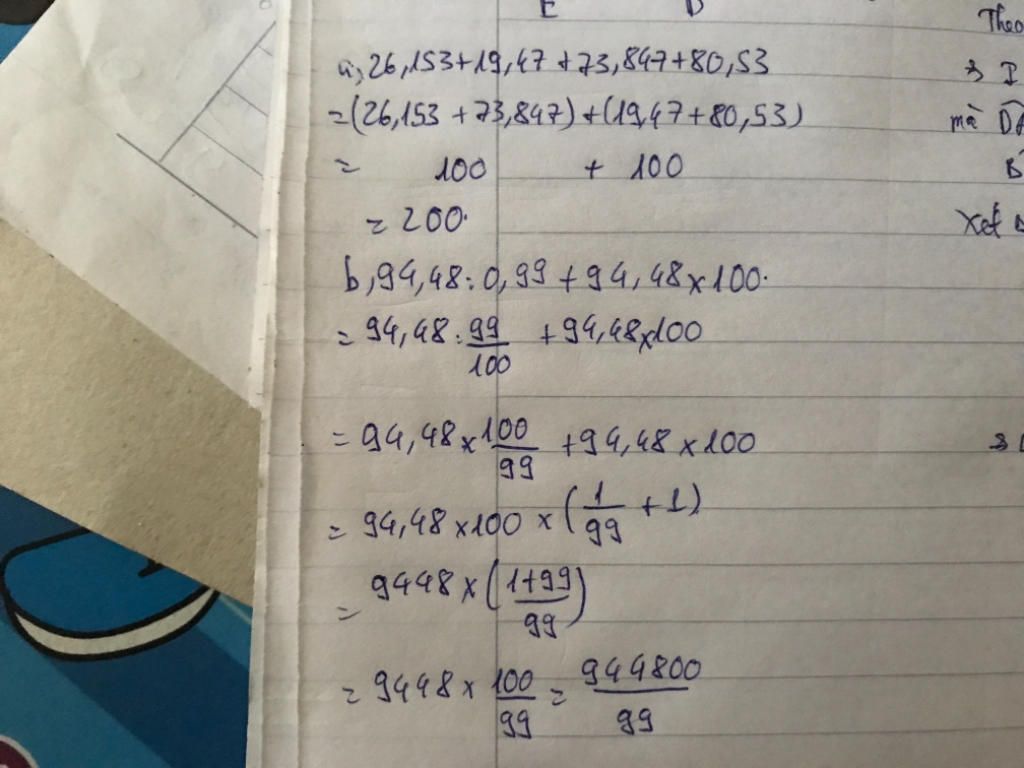 E D
Theo
a, 26,153+19,47+73,847+80,53
=(26,153+73,847)+(19,47+80,53)
= 100 + 100
= 200.
mà
Xét
b, 94,48:0,99+94,48×100.
= 94,48:99/100 +94,48×100
= 94,48×100/99 +94,48×100
= 94,48×100×(1/99+1)
= 9448×(1+99/99)
= 9448×100/99=944800/99